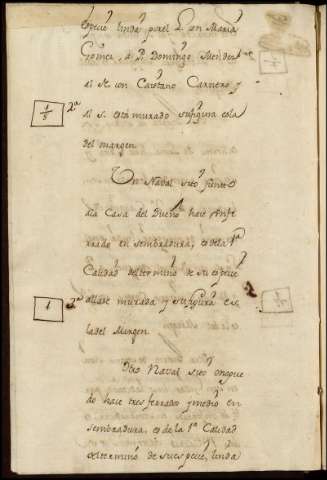 especie linda por el L. con Maria
Gomez, a P. Domingo Mendez
al N. con Caietano Carnero y
1/5 2ª al S. está murado su figura es la
del margen
Un Naval sito junto
á la Casa del Dueño hace un fe
rrado en sembradura, es de la 1ª
Calidad del termino de su especie
1 2ª allase murada y su figura es
la del Margen
Otro Naval sito en
do hace tres ferrado y medio en
sembradura, es de la 1ª Calidad
del termino de su especie, linda